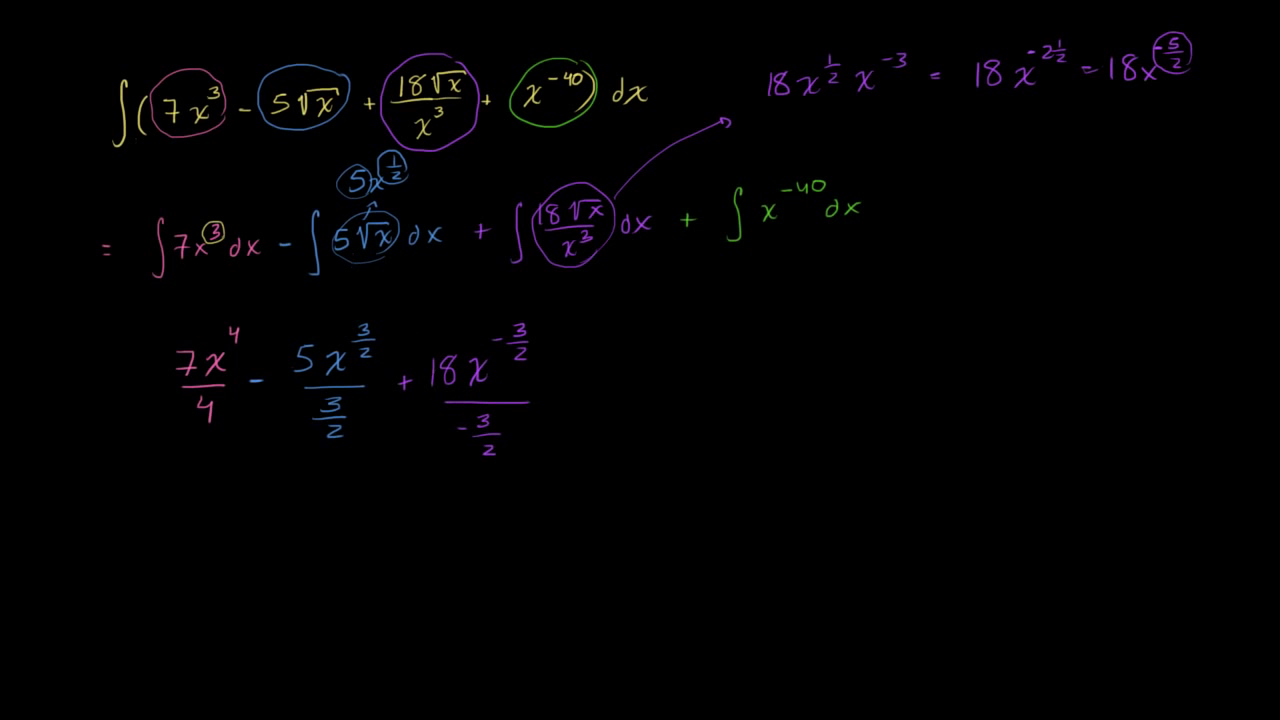 ∫(7x³ - 5√x + 18√x/x³ + x⁻⁴⁰) dx
18x^(1/2) x⁻³ = 18x^(-2 1/2) = 18x^(-5/2)
5x^(1/2)
= ∫7x³dx - ∫5√x dx + ∫18√x/x³ dx + ∫x⁻⁴⁰dx
7x⁴/4 - 5x^(3/2)/(3/2) + 18x^(-3/2)/(-3/2)